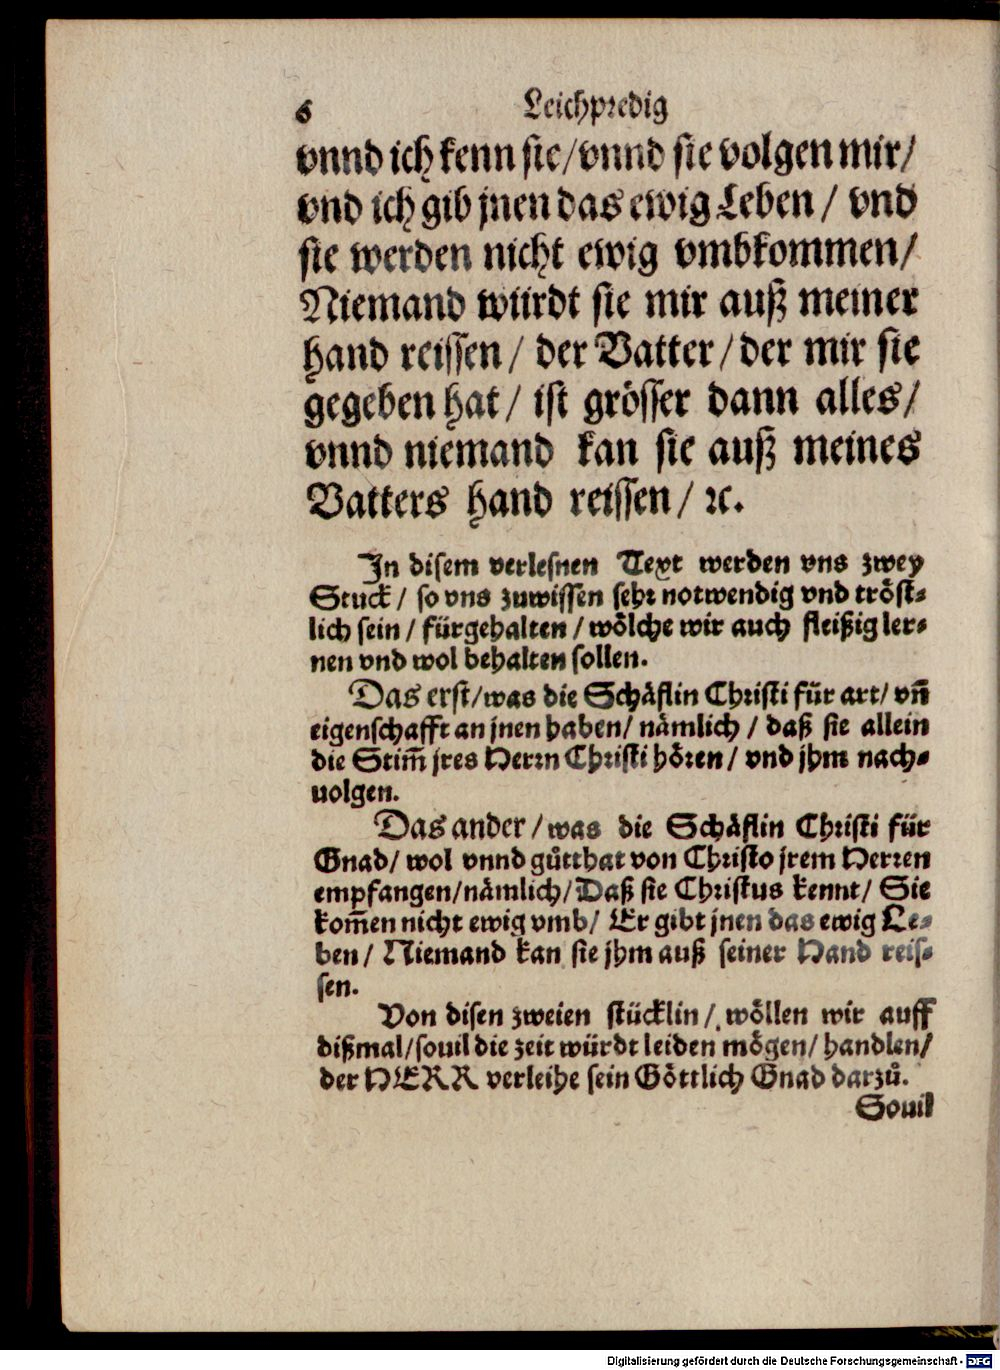 6 Leichpredig
vnnd ich kenn sie/vnnd sie volgen mir/
vnd ich gib jnen das ewig Leben / vnd
sie werden nicht ewig vmbkommen/
Niemand würdt sie mir auß meiner
hand reissen / der Vatter / der mir sie
gegeben hat / ist grösser dann alles/
vnnd niemand kan sie auß meines
Vatters hand reissen / ꝛc.
In disem verlesnen Text werden vns zwey
Stuck / so vns zuwissen sehr notwendig vnd tröst-
lich sein / fürgehalten / wölche wir auch fleißig ler-
nen vnd wol behalten sollen.
Das erst/was die Schäflin Christi für art/ vñ
eigenschafft an jnen haben/ nämlich / daß sie allein
die Stim̃ jres Herrn Christi hören / vnd jhm nach-
uolgen.
Das ander / was die Schäflin Christi für
Gnad/ wol vnnd gůtthat von Christo jrem Herren
empfangen/nämlich/Daß sie Christus kennt/ Sie
kom̃en nicht ewig vmb/ Er gibt jnen das ewig Le-
ben / Niemand kan sie jhm auß seiner Hand reis-
sen.
Von disen zweien stücklin / wöllen wir auff
dißmal/souil die zeit würdt leiden mögen/ handlen/
der HERR verleihe sein Göttlich Gnad darzů.
Souil
Digitalisierung gefördert durch die Deutsche Forschungsgemeinschaft - DFG